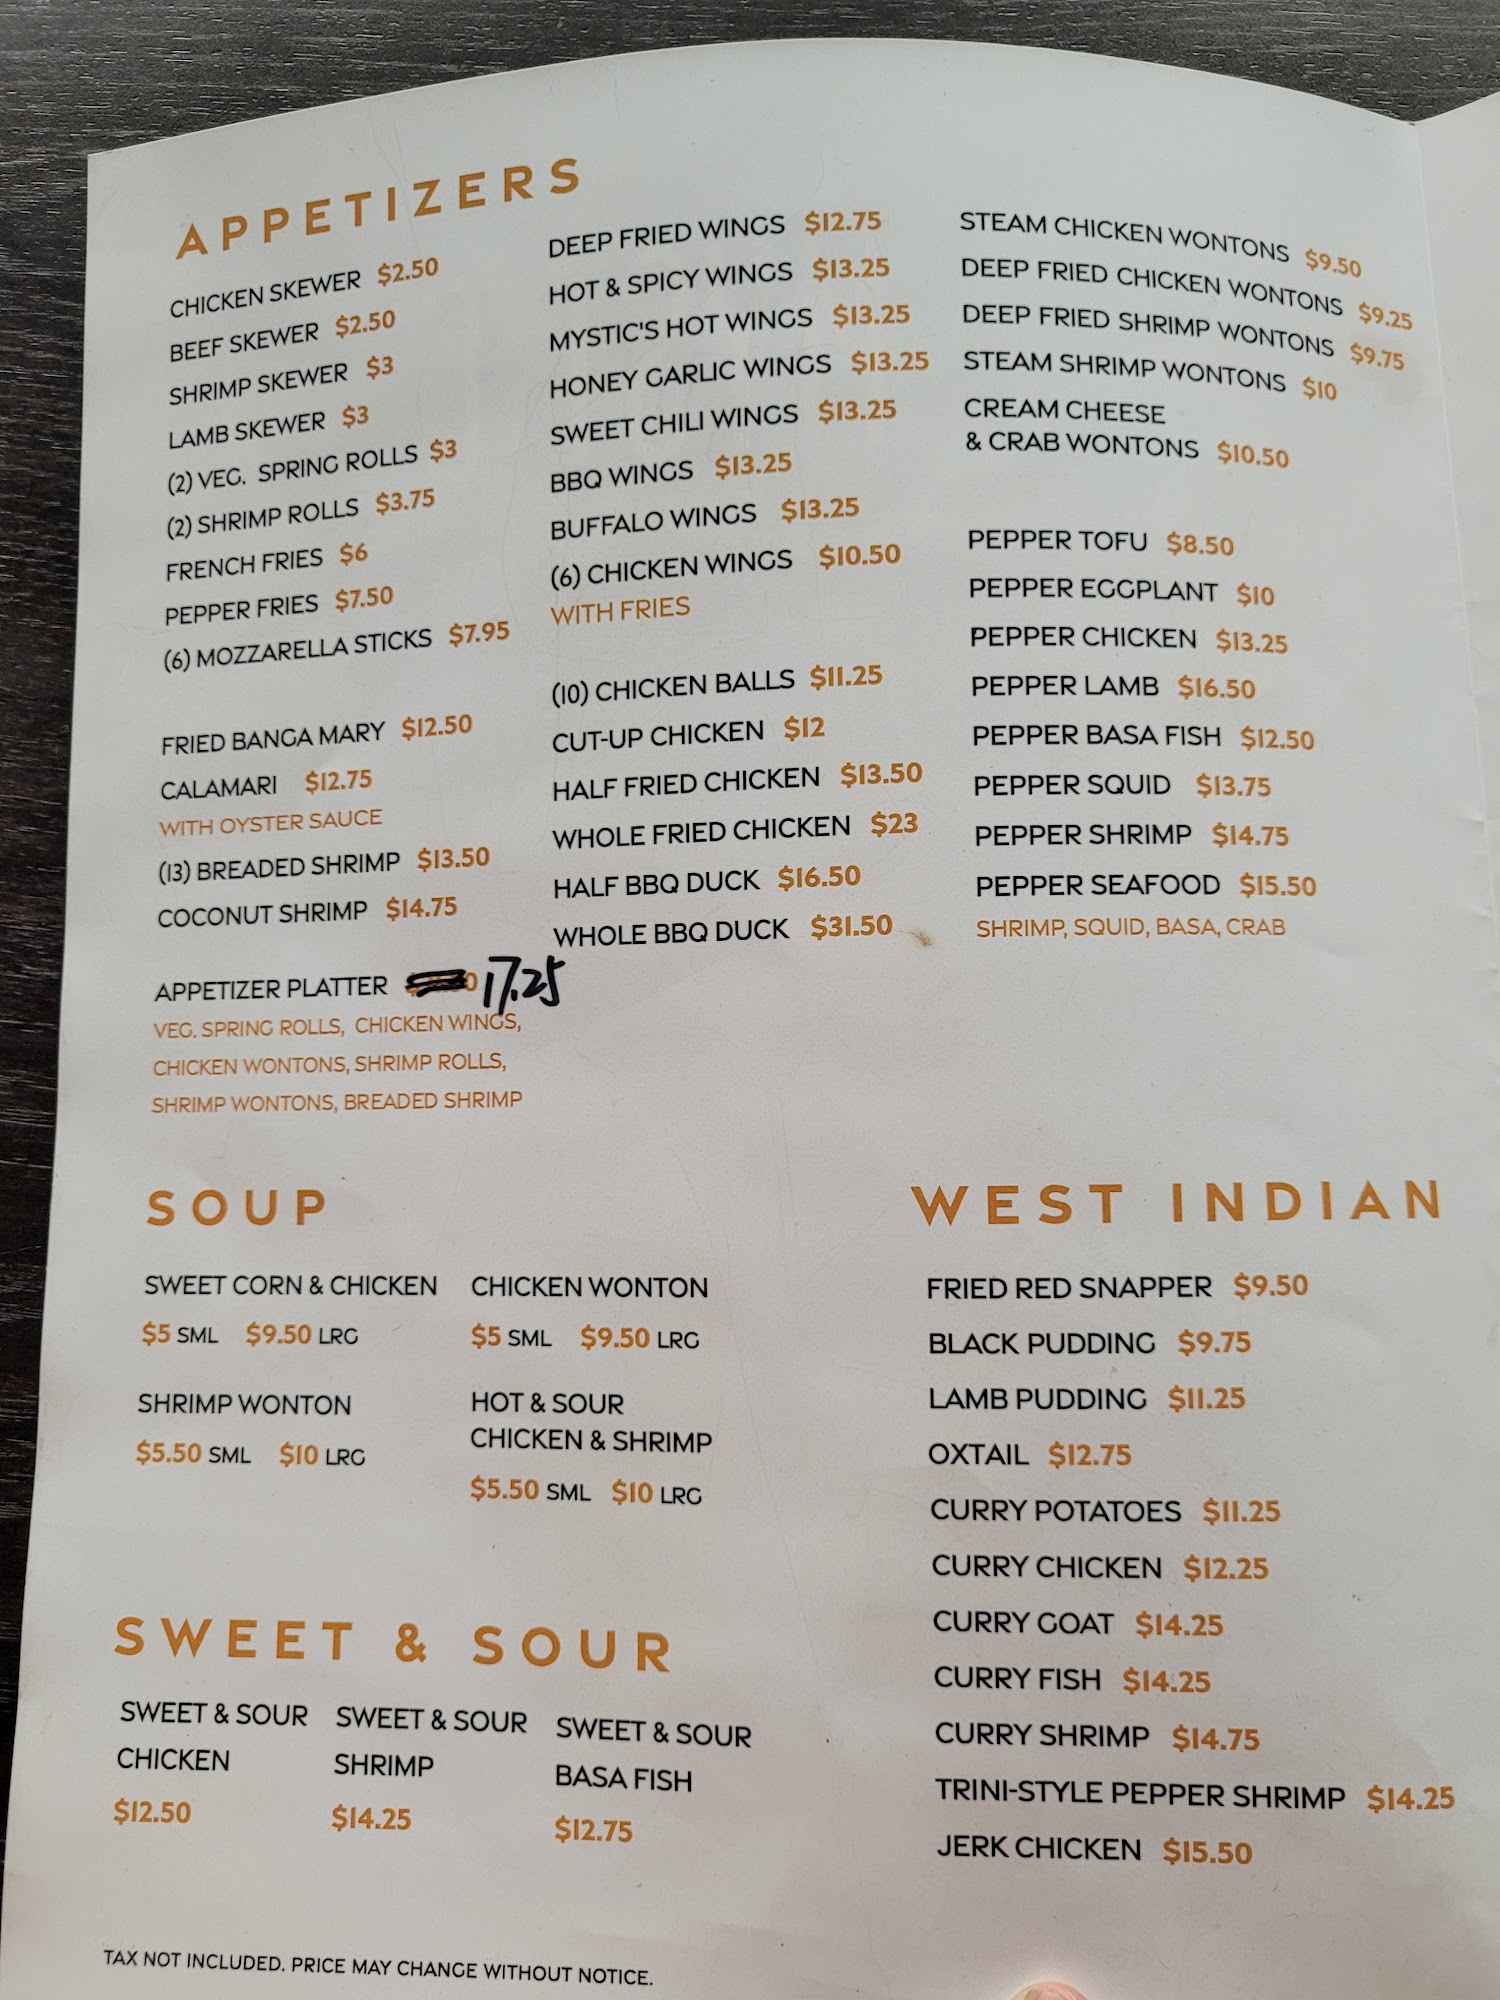 APPETIZERS
CHICKEN SKEWER $2.50
BEEF SKEWER $2.50
SHRIMP SKEWER $3
LAMB SKEWER $3
(2) VEG. SPRING ROLLS $3
(2) SHRIMP ROLLS $3.75
FRENCH FRIES $6
PEPPER FRIES $7.50
(6) MOZZARELLA STICKS $7.95
FRIED BANGA MARY $12.50
CALAMARI $12.75
WITH OYSTER SAUCE
(13) BREADED SHRIMP $13.50
COCONUT SHRIMP $14.75
APPETIZER PLATTER 17.25
VEG. SPRING ROLLS, CHICKEN WINGS,
CHICKEN WONTONS, SHRIMP ROLLS,
SHRIMP WONTONS, BREADED SHRIMP
DEEP FRIED WINGS $12.75
HOT & SPICY WINGS $13.25
MYSTIC'S HOT WINGS $13.25
HONEY GARLIC WINGS $13.25
SWEET CHILI WINGS $13.25
BBQ WINGS $13.25
BUFFALO WINGS $13.25
(6) CHICKEN WINGS $10.50
WITH FRIES
(10) CHICKEN BALLS $11.25
CUT-UP CHICKEN $12
HALF FRIED CHICKEN $13.50
WHOLE FRIED CHICKEN $23
HALF BBQ DUCK $16.50
WHOLE BBQ DUCK $31.50
STEAM CHICKEN WONTONS $9.50
DEEP FRIED CHICKEN WONTONS $9.25
DEEP FRIED SHRIMP WONTONS $9.75
STEAM SHRIMP WONTONS $10
CREAM CHEESE
& CRAB WONTONS $10.50
PEPPER TOFU $8.50
PEPPER EGGPLANT $10
PEPPER CHICKEN $13.25
PEPPER LAMB $16.50
PEPPER BASA FISH $12.50
PEPPER SQUID $13.75
PEPPER SHRIMP $14.75
PEPPER SEAFOOD $15.50
SHRIMP, SQUID, BASA, CRAB
SOUP
SWEET CORN & CHICKEN
$5 SML $9.50 LRG
CHICKEN WONTON
$5 SML $9.50 LRG
SHRIMP WONTON
$5.50 SML $10 LRG
HOT & SOUR
CHICKEN & SHRIMP
$5.50 SML $10 LRG
SWEET & SOUR
SWEET & SOUR
CHICKEN
$12.50
SWEET & SOUR
SHRIMP
$14.25
SWEET & SOUR
BASA FISH
$12.75
WEST INDIAN
FRIED RED SNAPPER $9.50
BLACK PUDDING $9.75
LAMB PUDDING $11.25
OXTAIL $12.75
CURRY POTATOES $11.25
CURRY CHICKEN $12.25
CURRY GOAT $14.25
CURRY FISH $14.25
CURRY SHRIMP $14.75
TRINI-STYLE PEPPER SHRIMP $14.25
JERK CHICKEN $15.50
TAX NOT INCLUDED. PRICE MAY CHANGE WITHOUT NOTICE.